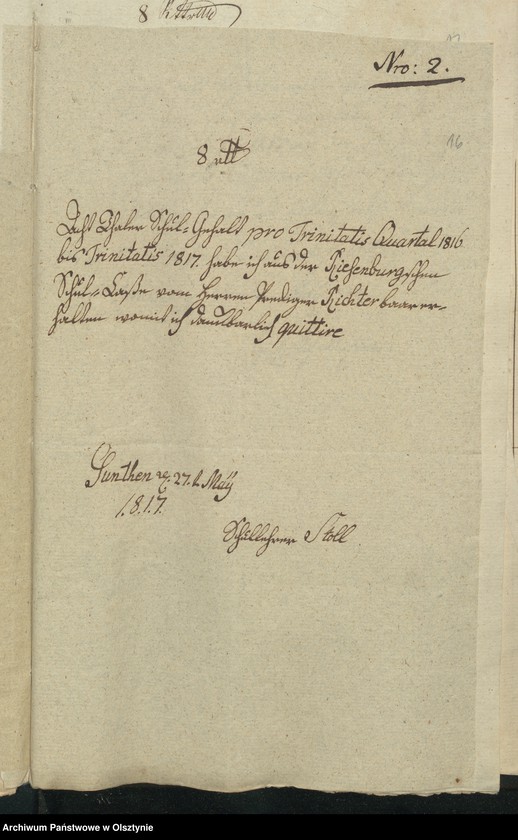 8
Nro: 2.
16
8 rtl
Acht Thaler Schul-Gehalt pro Trinitatis Quartal 1816
bis Trinitatis 1817 habe ich aus der Riesenburgschen
Schul-Casse vom Herren Prediger Richter baar er-
halten womit ich dankbarlich quittire
Sunthen d. 27. t. May
1.8.1.7.
Schullehrer Stoll
Archiwum Państwowe w Olsztynie